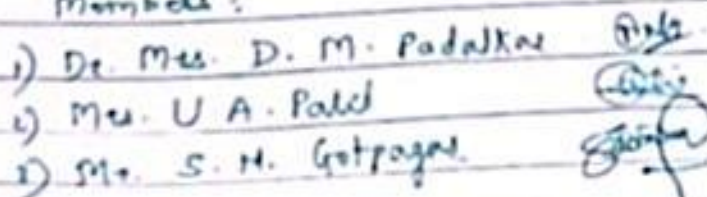 Members :
1) Dr. Mrs. D. M. Padalkar
2) Mrs. U A. Patil
3) Mr. S. H. Gotpagar.